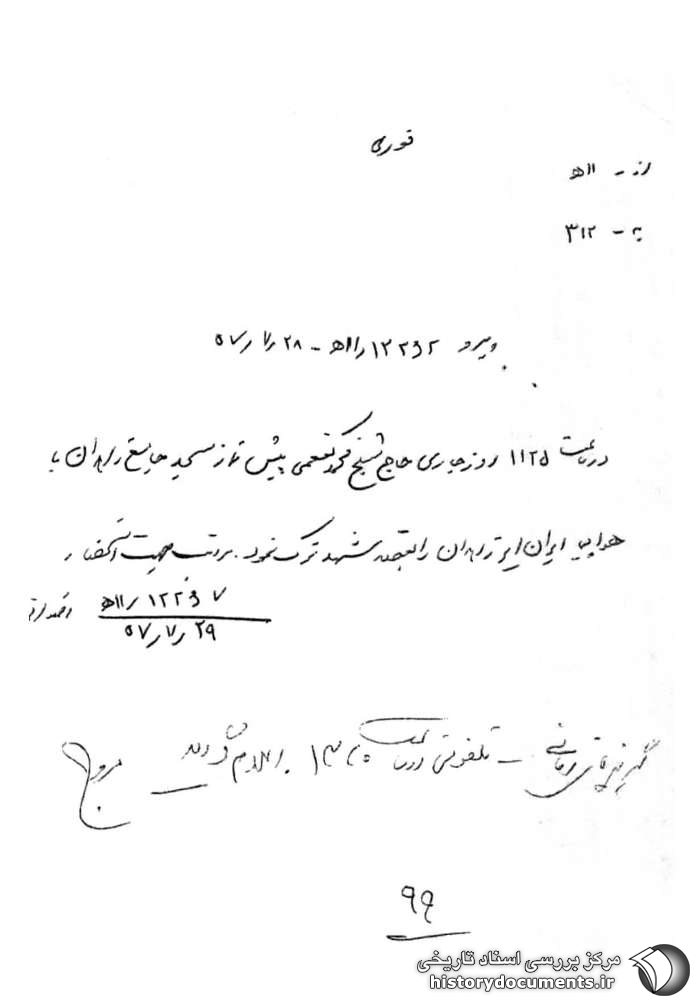 فوری
از - ۱۱ھ
به - ۳۱۲
پیرو ۱۲۲۶۲ /۱۱ھ - ۲۸ /۷ /۵۷
در ساعت ۱۱۲۵ روز جاری حاج شیخ محمد کفعمی پیش نماز مسجد جامع زاهدان با
هواپیما ایران ایر زاهدان را بقصد مشهد ترک نمود. مراتب جهت استحضار
۱۲۲۶۷ /۱۱ھ
۲۹ /۷ /۵۷
گیرنده - تلفونی در ساعت ۱۳۲۰ اعلام گردید
۹۹
مرکز بررسی اسناد تاریخی
historydocuments.ir